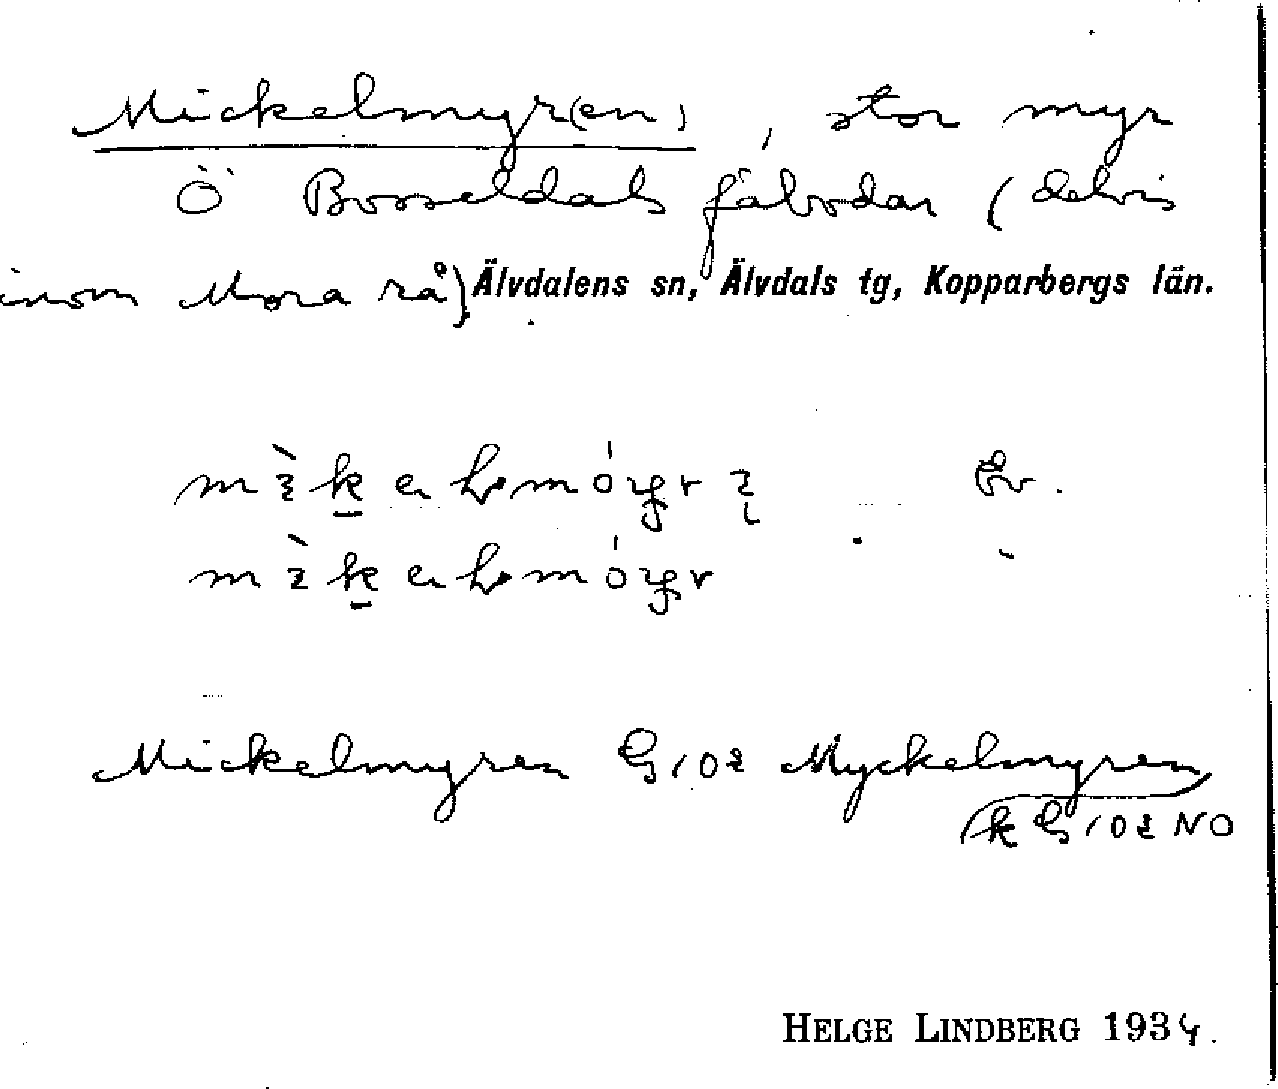 Mickelmyr(en), stor myr
Ö Bosseldals fäbodar (delvis
inom Mora rå) Älvdalens sn, Älvdals tg, Kopparbergs län.
Mickelmyren G102 Myckelmyren
k G102 NO
HELGE LINDBERG 1934.